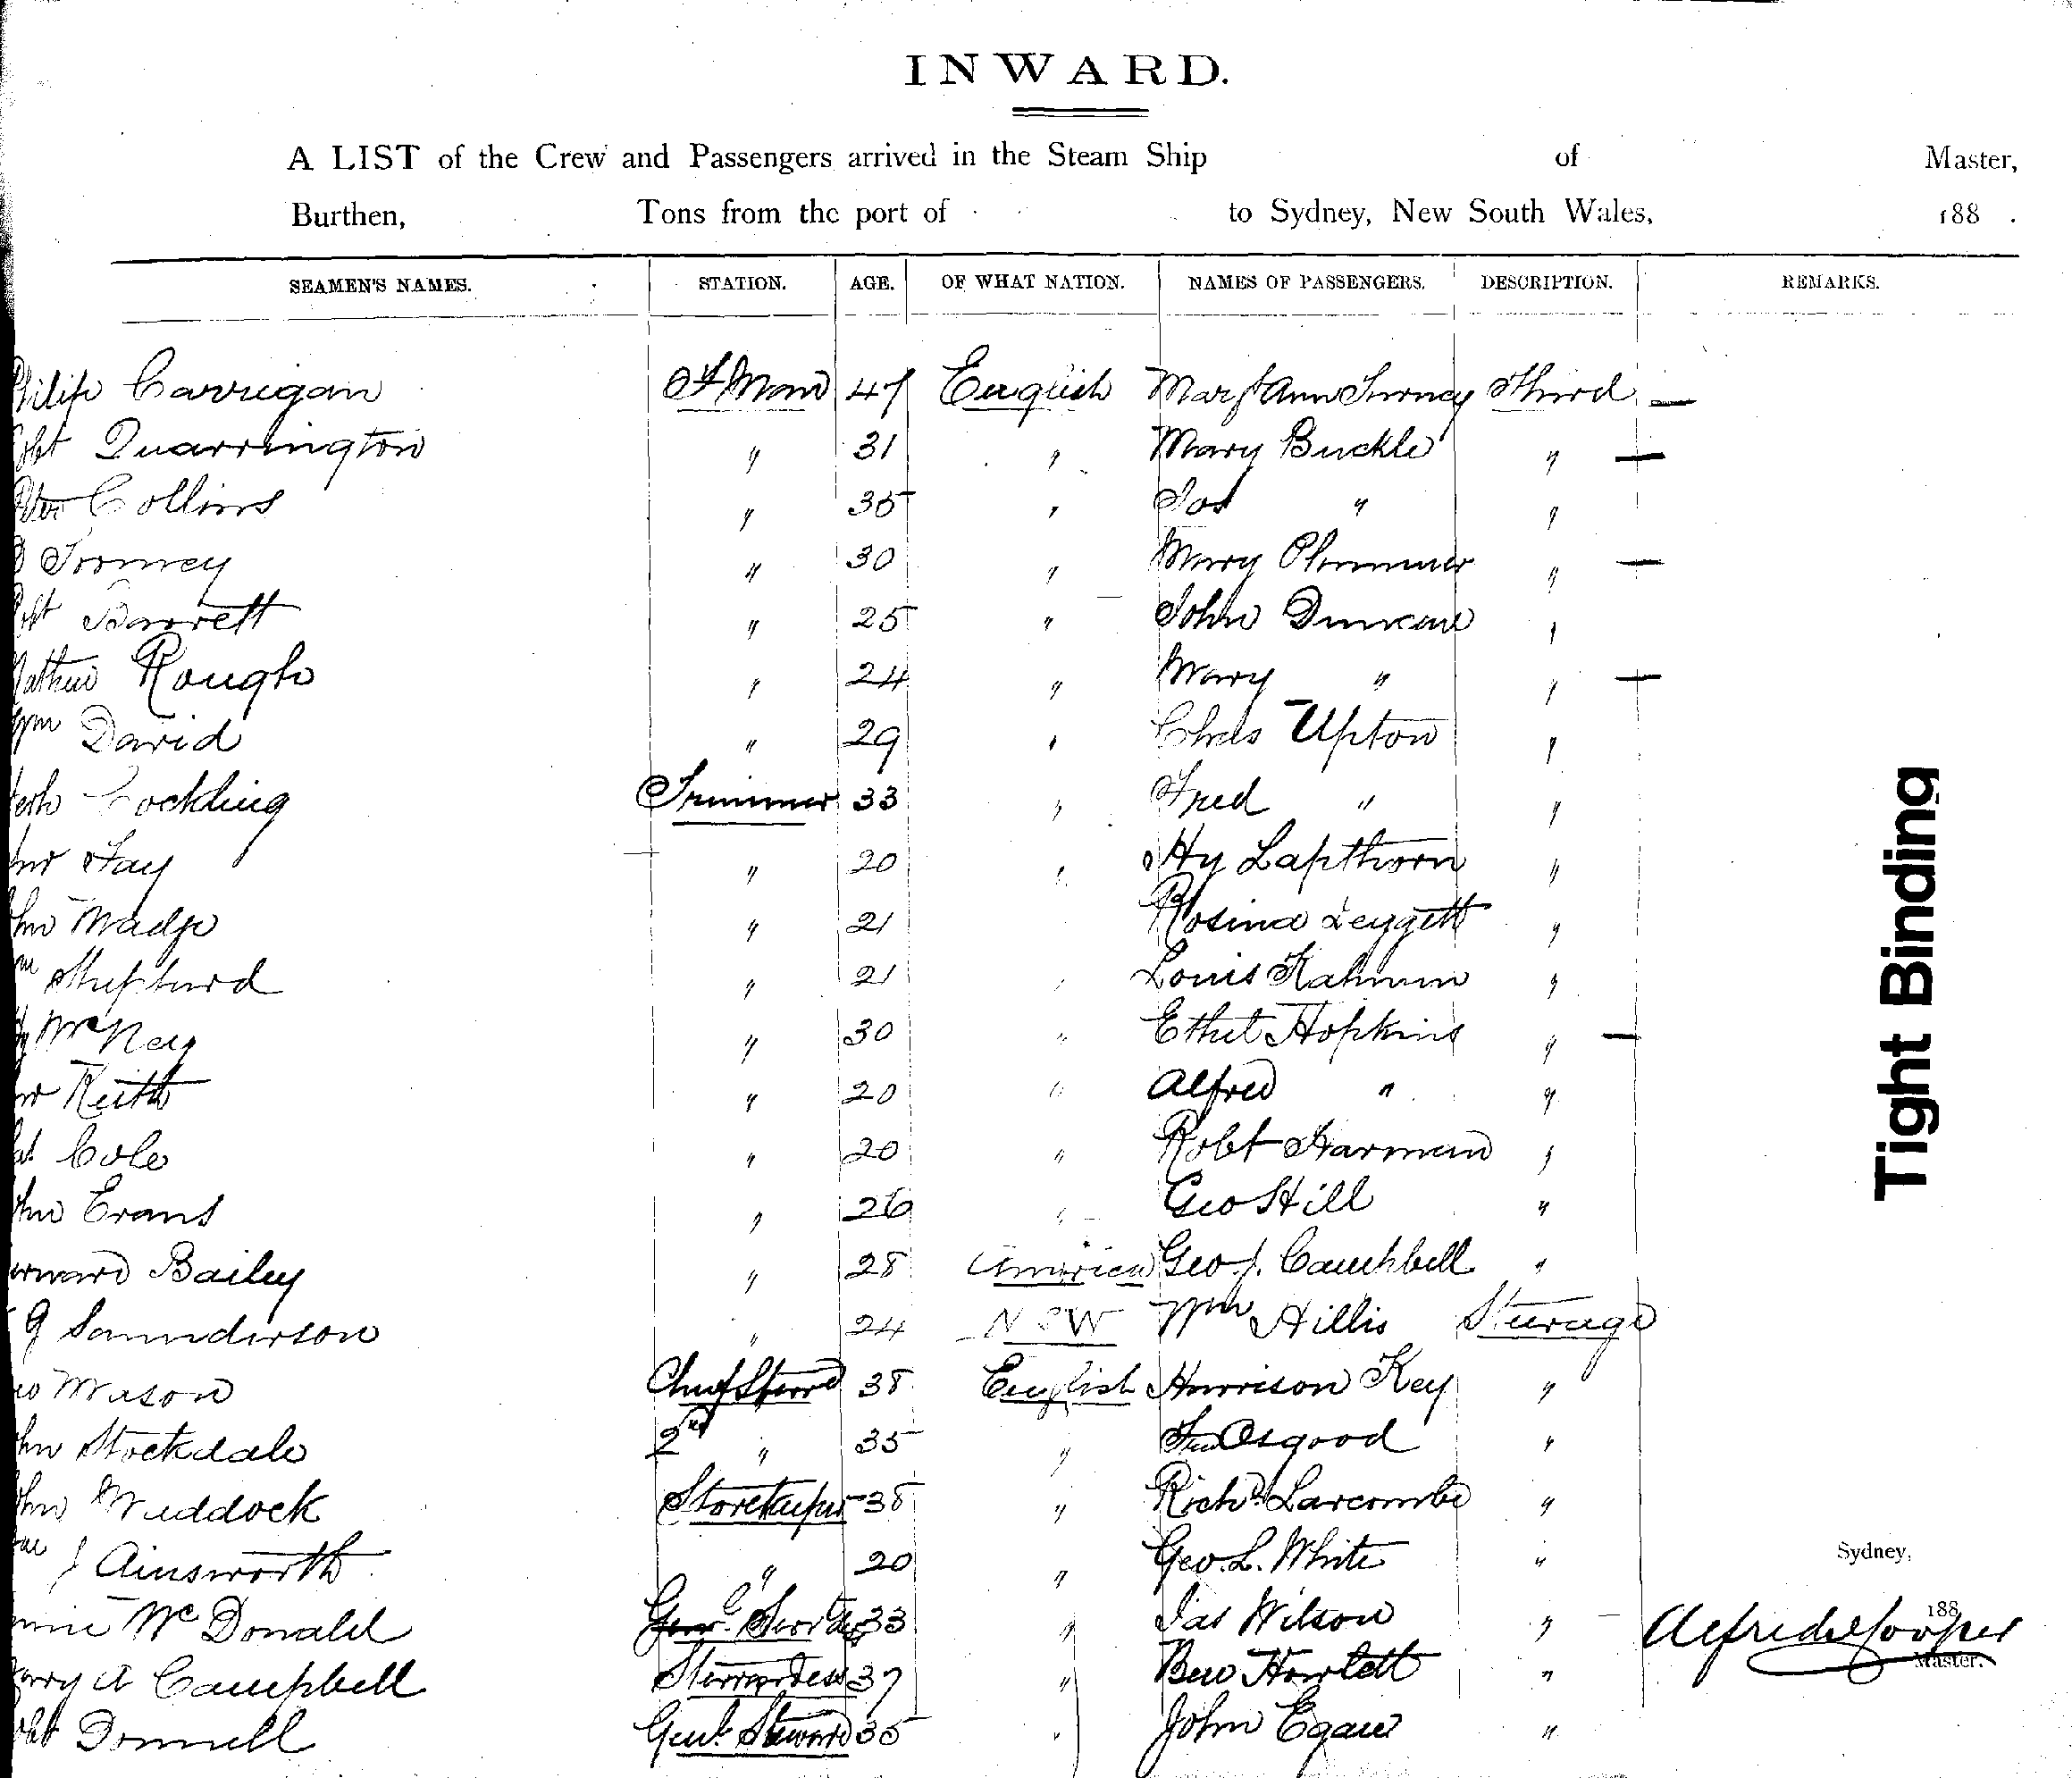 INWARD.
A LIST of the Crew and Passengers arrived in the Steam Ship of Master,
Burthen, Tons from the port of to Sydney, New South Wales, 188 .
SEAMEN'S NAMES. STATION. AGE. OF WHAT NATION. NAMES OF PASSENGERS. DESCRIPTION. REMARKS.
Philip Carrigan F Man 47 English Margt Ann Third —
Robt Quarrington " 31 " Mary Buckle " —
Peter Collins " 35 " Jas " "
Toomey " 30 " Mary Plummer " —
Robt Barrett " 25 " John Duncan "
Mathew Rough " 24 " Mary " " —
Wm David " 29 " Chas Upton "
Cockling Trimmer 33 " Fred " "
Fay " 20 " Hy Lapthorn "
John Madge " 21 Rosina Leggett "
Wm Shepherd " 21 " Louis "
McNey " 30 " Ethel Hopkins " —
Keith " 20 " Alfred " "
Cole " 20 " Robt Harman "
John Evans " 26 " Geo Hill "
Bailey " 28 America Geo. J. Campbell "
G Saunderson " 24 NSW Wm Hillis Steerage
Geo Mason Chief Steward 38 English Harrison Key "
John Stockdale 2nd " 35 " Osgood "
John Weddock Storekeeper 38 " Richd Larcombe "
Wm J Ainsworth " 20 " Geo. L. White "
McDonald Genl 33 " Jas Wilson "
Mary A Campbell Stewardess 37 " Ben Howlett "
Robt Donnell Genl. Steward 35 " John Egan "
Sydney,
188
Alfred Cooper
Master.
Tight Binding